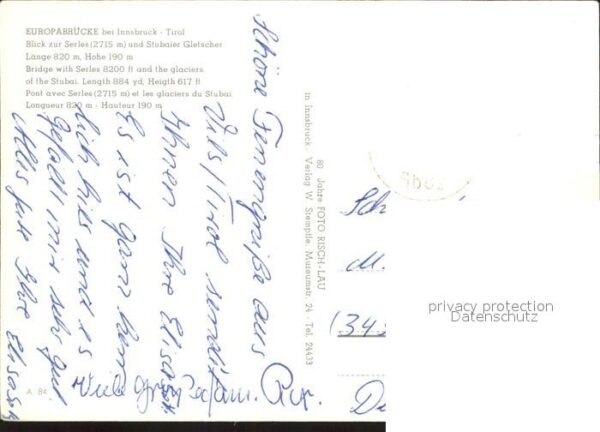 EUROPABRÜCKE bei Innsbruck - Tirol
Blick zur Serles (2715 m) und Stubaier Gletscher
Länge 820 m, Hohe 190 m
Bridge with Serles 8200 ft and the glaciers
of the Stubai. Length 884 yd, Heigth 617 ft
Pont avec Serles (2715 m) et les glaciers du Stubai.
Longueur 820 m - Hauteur 190 m
Schöne Feriengrüße aus
Vils/Tirol sendet
Ihnen Ihre Elisabeth
Es ist ganz
hier und es
gefällt mir sehr gut
Alles gute Ihre Elisabeth
Viele
A 84
80 Jahre FOTO RISCH-LAU
in Innsbruck Verlag W. Stempfle, Museumstr. 24 - Tel. 24433
Sch
M.
(34
D
privacy protection
Datenschutz